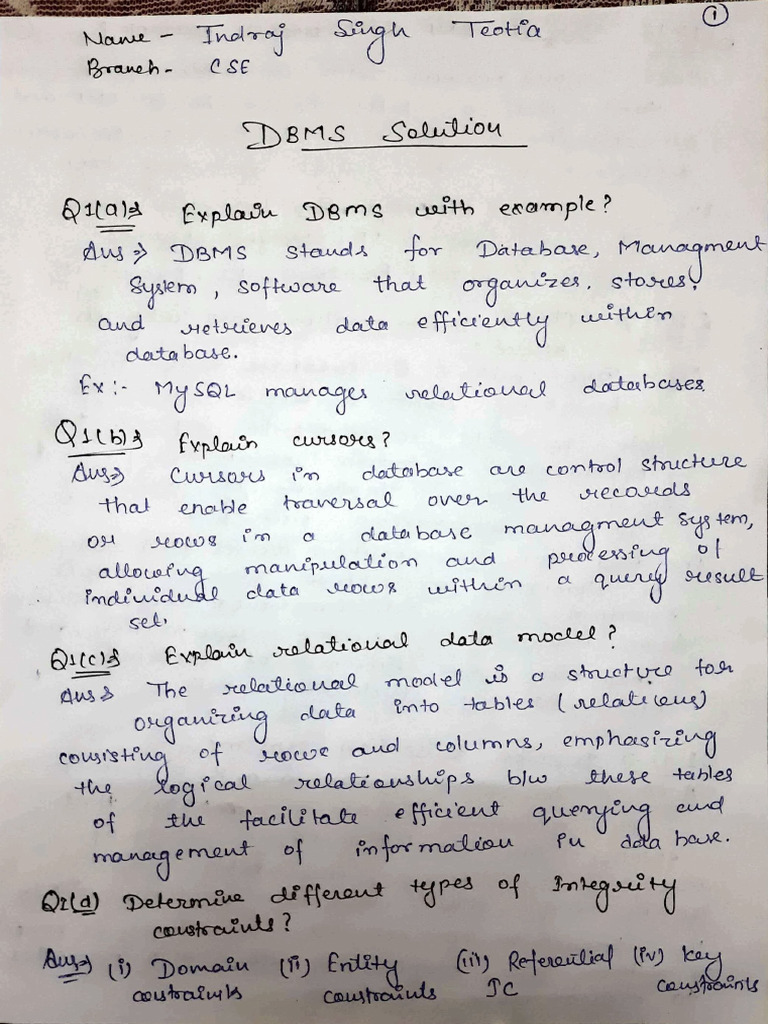 1
Name - Indraj Singh Teotia
Branch - CSE
DBMS Solution
Q1(a)⇒ Explain DBMS with example?
Ans ⇒ DBMS stands for Database, Managment
System, software that organizes, stores,
and retrieves data efficiently within
database.
Ex:- MySQL manages relational databases.
Q1(b)⇒ Explain cursors?
Ans⇒ Cursors in database are control structure
that enable traversal over the records
or rows in a database managment system,
allowing manipulation and processing of
individual data rows within a query result
set.
Q1(c)⇒ Explain relational data model?
Ans⇒ The relational model is a structure for
organizing data into tables (relations)
consisting of rows and columns, emphasizing
the logical relationships b/w these tables
of the facilitate efficient querying and
management of information in data base.
Q1(d) Determine different types of Integrity
constraints?
Ans⇒ (i) Domain (ii) Entity (iii) Referential (iv) Key
constraints constraints IC constraints